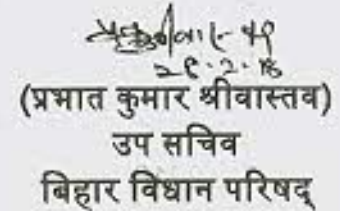 २९.२.१८
(प्रभात कुमार श्रीवास्तव)
उप सचिव
बिहार विधान परिषद्